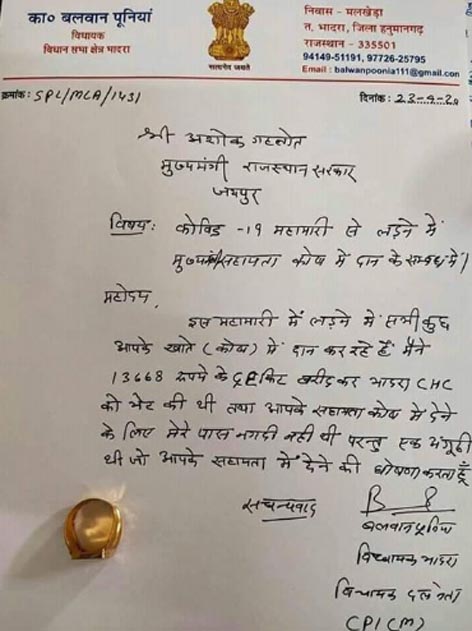 का० बलवान पूनियां
विधायक
विधान सभा क्षेत्र भादरा
सत्यमेव जयते
निवास - मलखेड़ा
त. भादरा, जिला हनुमानगढ़
राजस्थान - 335501
94149-51191, 97726-25795
Email : balwanpoonia111@gmail.com
क्रमांक: SPL/MLA/1431
दिनांक: 23-4-20
श्री अशोक गहलोत
मुख्यमंत्री राजस्थान सरकार
जयपुर
विषय: कोविड -19 महामारी से लड़ने में
मुख्यमंत्री सहायता कोष में दान के सम्बन्ध में।
महोदय,
इस महामारी में लड़ने में सभी कुछ
आपके खाते (कोष) में दान कर रहे हैं मैने
13668 रूपये के किट खरीदकर भादरा CHC
को भेंट की थी तथा आपके सहायता कोष में देने
के लिए मेरे पास नगदी नही थी परन्तु एक अंगूठी
थी जो आपके सहायता में देने की घोषणा करता हूँ
सधन्यवाद
बलवान पूनियां
विधायक भादरा
विधायक दल नेता
CPI(M)